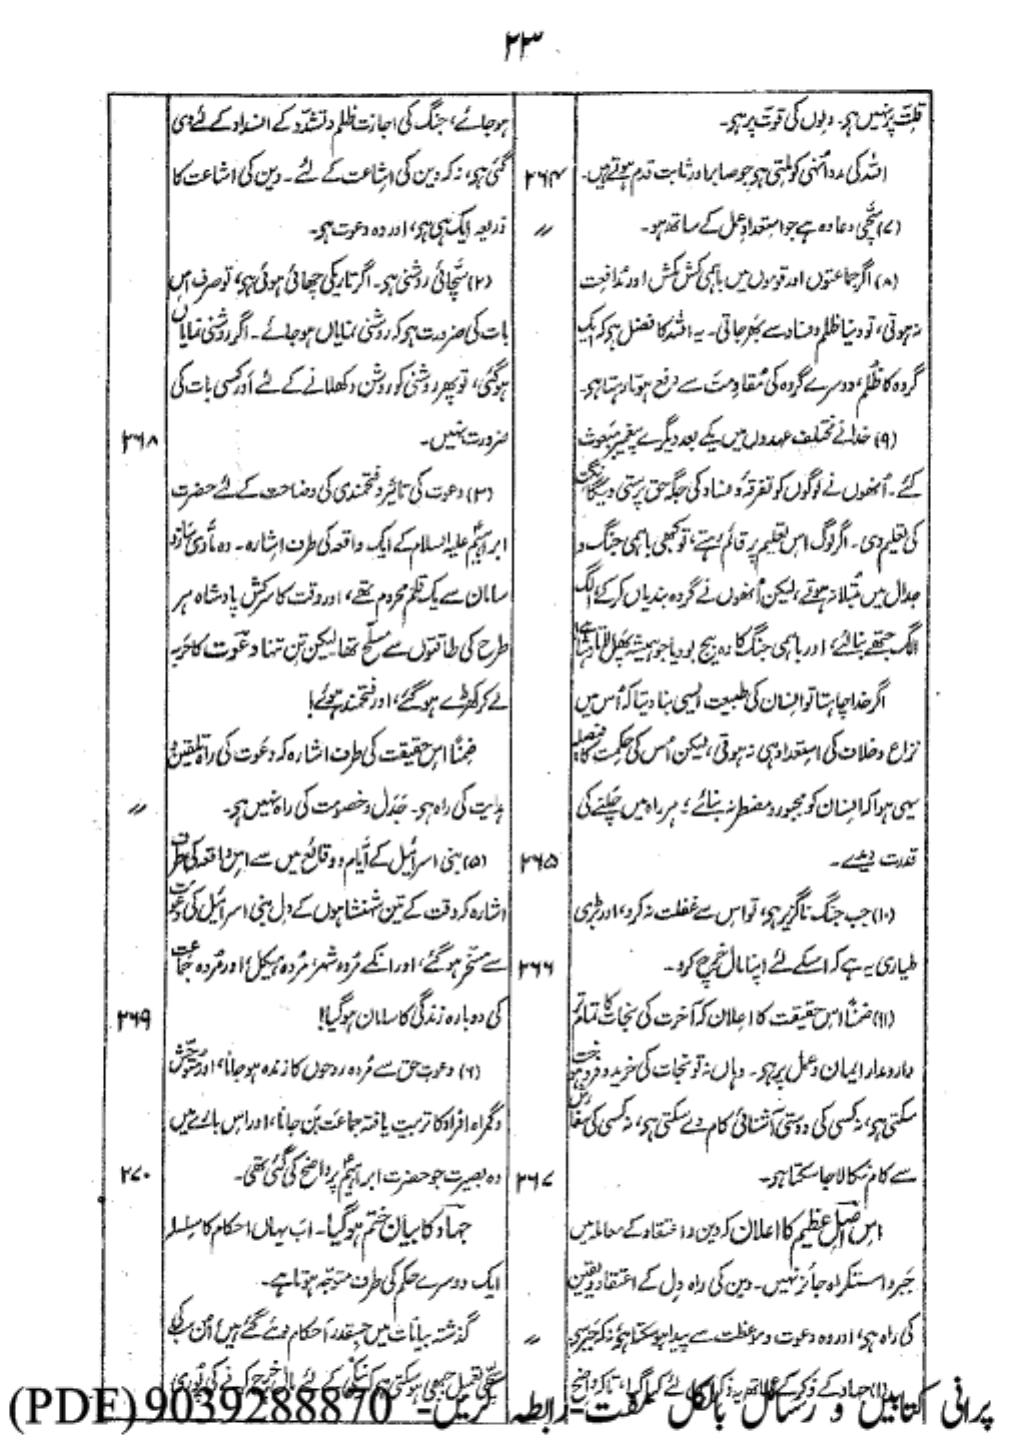 ۲۳
قلت پر نہیں ہے۔ دلوں کی قوت پر ہے۔
اللہ کی مدد انہی کو ملتی ہے جو صابر اور ثابت قدم ہوتے ہیں۔ ۲۶۴
(۷) سچی دعا وہ ہے جو استعداد عمل کے ساتھ ہو۔ 〃
(۸) اگر جماعتوں اور قوموں میں باہمی کش مکش اور مدافعت
نہ ہوتی، تو دنیا ظلم و فساد سے بھر جاتی۔ یہ اللہ کا فضل ہے کہ ایک
گروہ کا ظلم، دوسرے گروہ کی مقاومت سے دفع ہوتا رہتا ہے۔
(۹) خدا نے مختلف عہدوں میں یکے بعد دیگرے پیغمبر مبعوث
کئے۔ اُنھوں نے لوگوں کو تفرقہ و فساد کی جگہ حق پرستی و یگانگت
کی تعلیم دی۔ اگر لوگ اس تعلیم پر قائم رہتے، تو کبھی باہمی جنگ و
جدال میں مبتلا نہ ہوتے، لیکن اُنھوں نے گروہ بندیاں کر کے الگ
الگ جتھے بنا لئے، اور باہمی جنگ کا وہ بیج بو دیا جو ہمیشہ پھل لاتا رہتا ہے
اگر خدا چاہتا تو انسان کی طبیعت ایسی بنا دیتا کہ اُس میں
نزاع و خلاف کی استعداد ہی نہ ہوتی، لیکن اُس کی حکمت کا فیصلہ
یہی ہوا کہ انسان کو مجبور و مضطر نہ بنائے، ہر راہ میں چلنے کی
قدرت دیدے۔ ۲۶۵
(۱۰) جب جنگ ناگزیر ہے، تو اس سے غفلت نہ کرو، اور بڑی
طیاری یہ ہے کہ اسکے لئے اپنا مال خرچ کرو۔ ۲۶۶
(۱۱) ضمناً اس حقیقت کا اعلان کہ آخرت کی نجات کا تمام تر
دارومدار ایمان و عمل پر ہے۔ وہاں نہ تو نجات کی خرید و فروخت ہو
سکتی ہے، نہ کسی کی دوستی آشنائی کام دے سکتی ہے، نہ کسی کی سفارش
سے کام نکالا جا سکتا ہے۔ ۲۶۷
اس اصل عظیم کا اعلان کہ دین و اعتقاد کے معاملہ میں
جبر و استکراہ جائز نہیں۔ دین کی راہ دل کے اعتقاد و یقین
کی راہ ہے، اور وہ دعوت و موعظت سے پیدا ہو سکتا ہے، نہ کہ جبر سے 〃
(۱) جہاد کے ذکر کے ساتھ یہ ذکر اس لئے کیا گیا، تاکہ واضح
ہو جائے، جنگ کی اجازت ظلم و تشدد کے انسداد کے لئے دی
گئی ہے، نہ کہ دین کی اشاعت کے لئے۔ دین کی اشاعت کا
ذریعہ ایک ہی ہے، اور وہ دعوت ہے۔
(۲) سچائی روشنی ہے۔ اگر تاریکی چھائی ہوئی ہے، تو صرف اس
بات کی ضرورت ہے کہ روشنی نمایاں ہو جائے۔ اگر روشنی نمایاں
ہو گئی، تو پھر روشنی کو روشن دکھلانے کے لئے اور کسی بات کی
ضرورت نہیں۔ ۲۶۸
(۳) دعوت کی تاثیر و فتحمندی کی وضاحت کے لئے حضرت
ابراہیم علیہ السلام کے ایک واقعہ کی طرف اشارہ۔ وہ مادی سازو
سامان سے یک قلم محروم تھے، اور وقت کا سرکش پادشاہ ہر
طرح کی طاقتوں سے مسلح تھا لیکن تن تنہا دعوت کا حربہ
لے کر کھڑے ہو گئے، اور فتحمند ہوئے!
ضمناً اس حقیقت کی طرف اشارہ کہ دعوت کی راہ تلقین و
ہدایت کی راہ ہے۔ جدل و خصومت کی راہ نہیں ہے۔ 〃
(۵) بنی اسرائیل کے ایام و وقائع میں سے اس واقعہ کی طرف
اشارہ کہ وقت کے تین شہنشاہوں کے دل بنی اسرائیل کی دعوت
سے مسخر ہو گئے، اور انکے مردہ شہر، مردہ ہیکل، اور مردہ جماعت
کی دوبارہ زندگی کا سامان ہو گیا! ۲۶۹
(۶) دعوت حق سے مردہ روحوں کا زندہ ہو جانا، اور متوحش
و گمراہ افراد کا تربیت یافتہ جماعت بن جانا، اور اس بارے میں
وہ بصیرت جو حضرت ابراہیم پر واضح کی گئی تھی۔ ۲۷۰
جہاد کا بیان ختم ہو گیا۔ اب یہاں احکام کا سلسلہ
ایک دوسرے حکم کی طرف متوجہ ہوتا ہے۔
گذشتہ بیانات میں جسقدر احکام دئے گئے ہیں، اُن سب کی
سچی تعمیل جبھی ہو سکتی ہے کہ نیکی کے لئے مال خرچ کرنے کی پوری
پرانی کتابیں و رسائل بالکل مفت۔ رابطہ کریں۔ 9039288870 (PDF)